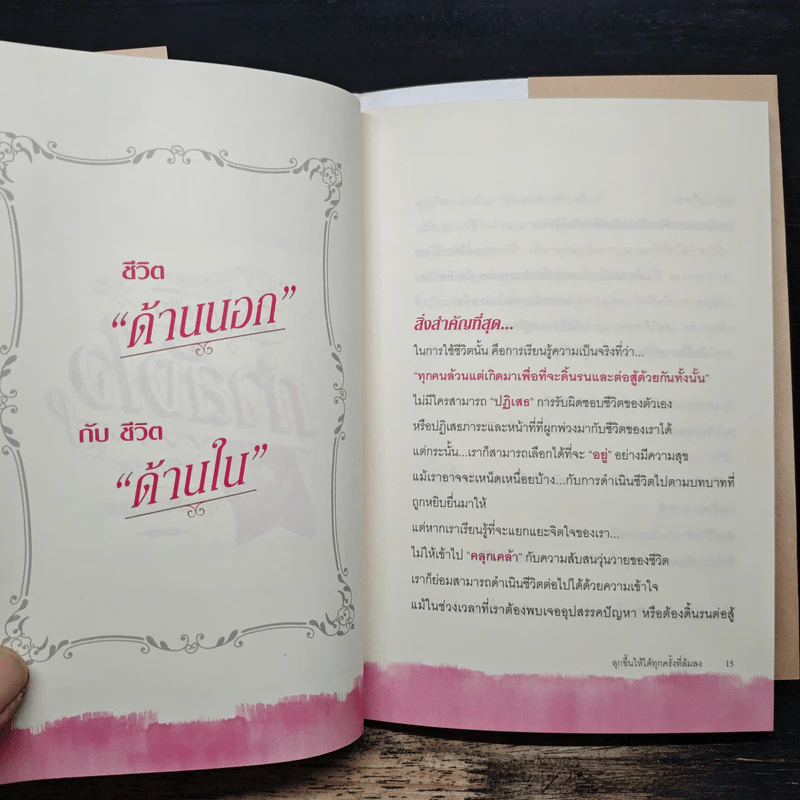 ชีวิต
“ด้านนอก”
กับ ชีวิต
“ด้านใน”
สิ่งสำคัญที่สุด...
ในการใช้ชีวิตนั้น คือการเรียนรู้ความเป็นจริงที่ว่า...
“ทุกคนล้วนแต่เกิดมาเพื่อที่จะดิ้นรนและต่อสู้ด้วยกันทั้งนั้น”
ไม่มีใครสามารถ “ปฏิเสธ” การรับผิดชอบชีวิตของตัวเอง
หรือปฏิเสธภาระและหน้าที่ที่ผูกพ่วงมากับชีวิตของเราได้
แต่กระนั้น...เราก็สามารถเลือกได้ที่จะ “อยู่” อย่างมีความสุข
แม้เราอาจจะเหน็ดเหนื่อยบ้าง...กับการดำเนินชีวิตไปตามบทบาทที่
ถูกหยิบยื่นมาให้
แต่หากเราเรียนรู้ที่จะแยกแยะจิตใจของเรา...
ไม่ให้เข้าไป “คลุกเคล้า” กับความสับสนวุ่นวายของชีวิต
เราก็ย่อมสามารถดำเนินชีวิตต่อไปได้ด้วยความเข้าใจ
แม้ในช่วงเวลาที่เราต้องพบเจออุปสรรคปัญหา หรือต้องดิ้นรนต่อสู้
ลุกขึ้นให้ได้ทุกครั้งที่ล้มลง 15